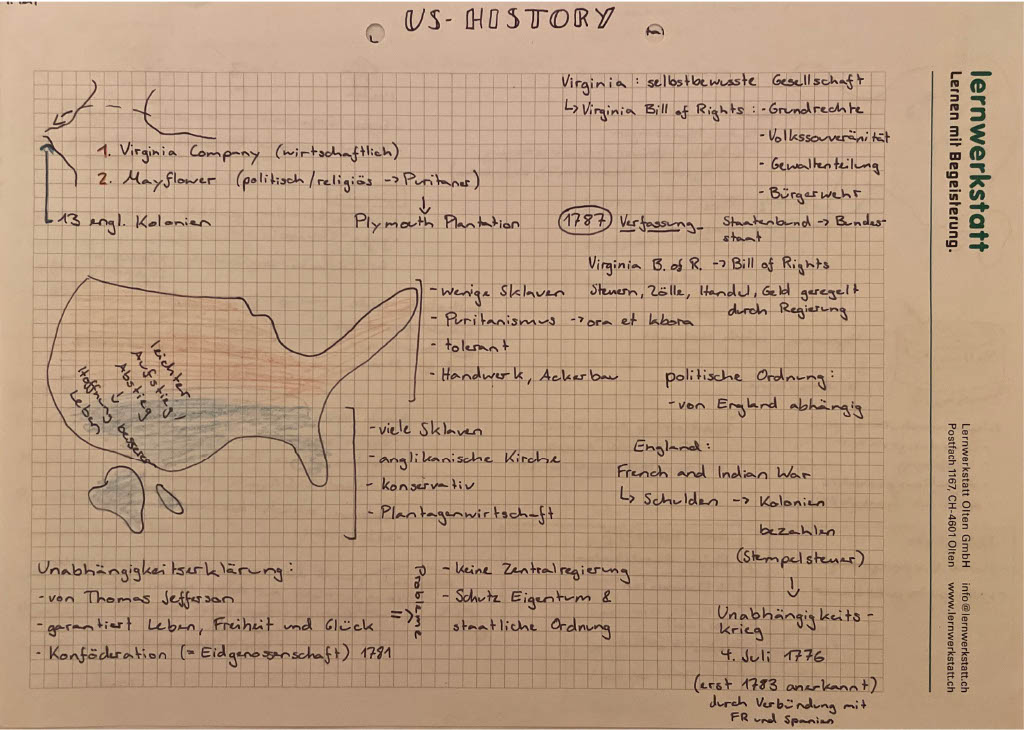 US-HISTORY
1. Virginia Company (wirtschaftlich)
2. Mayflower (politisch/religiös -> Puritaner)
↓
Plymouth Plantation
13 engl. Kolonien
Virginia : selbstbewusste Gesellschaft
↳ Virginia Bill of Rights : - Grundrechte
- Volkssouveränität
- Gewaltenteilung
- Bürgerwehr
1787 Verfassung Staatenbund -> Bundes-
staat
Virginia B. of R. -> Bill of Rights
Steuern, Zölle, Handel, Geld geregelt
durch Regierung
- wenige Sklaven
- Puritanismus -> ora et labora
- tolerant
- Handwerk, Ackerbau
leichter
Aufstieg/
Abstieg
↓
Hoffnung besseres
Leben
- viele Sklaven
- anglikanische Kirche
- konservativ
- Plantagenwirtschaft
politische Ordnung:
- von England abhängig
England:
French and Indian War
↳ Schulden -> Kolonien
bezahlen
(Stempelsteuer)
↓
Unabhängigkeits-
krieg
4. Juli 1776
(erst 1783 anerkannt)
durch Verbündung mit
FR und Spanien
Unabhängigkeitserklärung:
- von Thomas Jefferson
- garantiert Leben, Freiheit und Glück
- Konföderation (= Eidgenossenschaft) 1781
=> Probleme
- Keine Zentralregierung
- Schutz Eigentum &
staatliche Ordnung
lernwerkstatt
Lernen mit Begeisterung.
Lernwerkstatt Olten GmbH info@lernwerkstatt.ch
Postfach 1167, CH-4601 Olten www.lernwerkstatt.ch